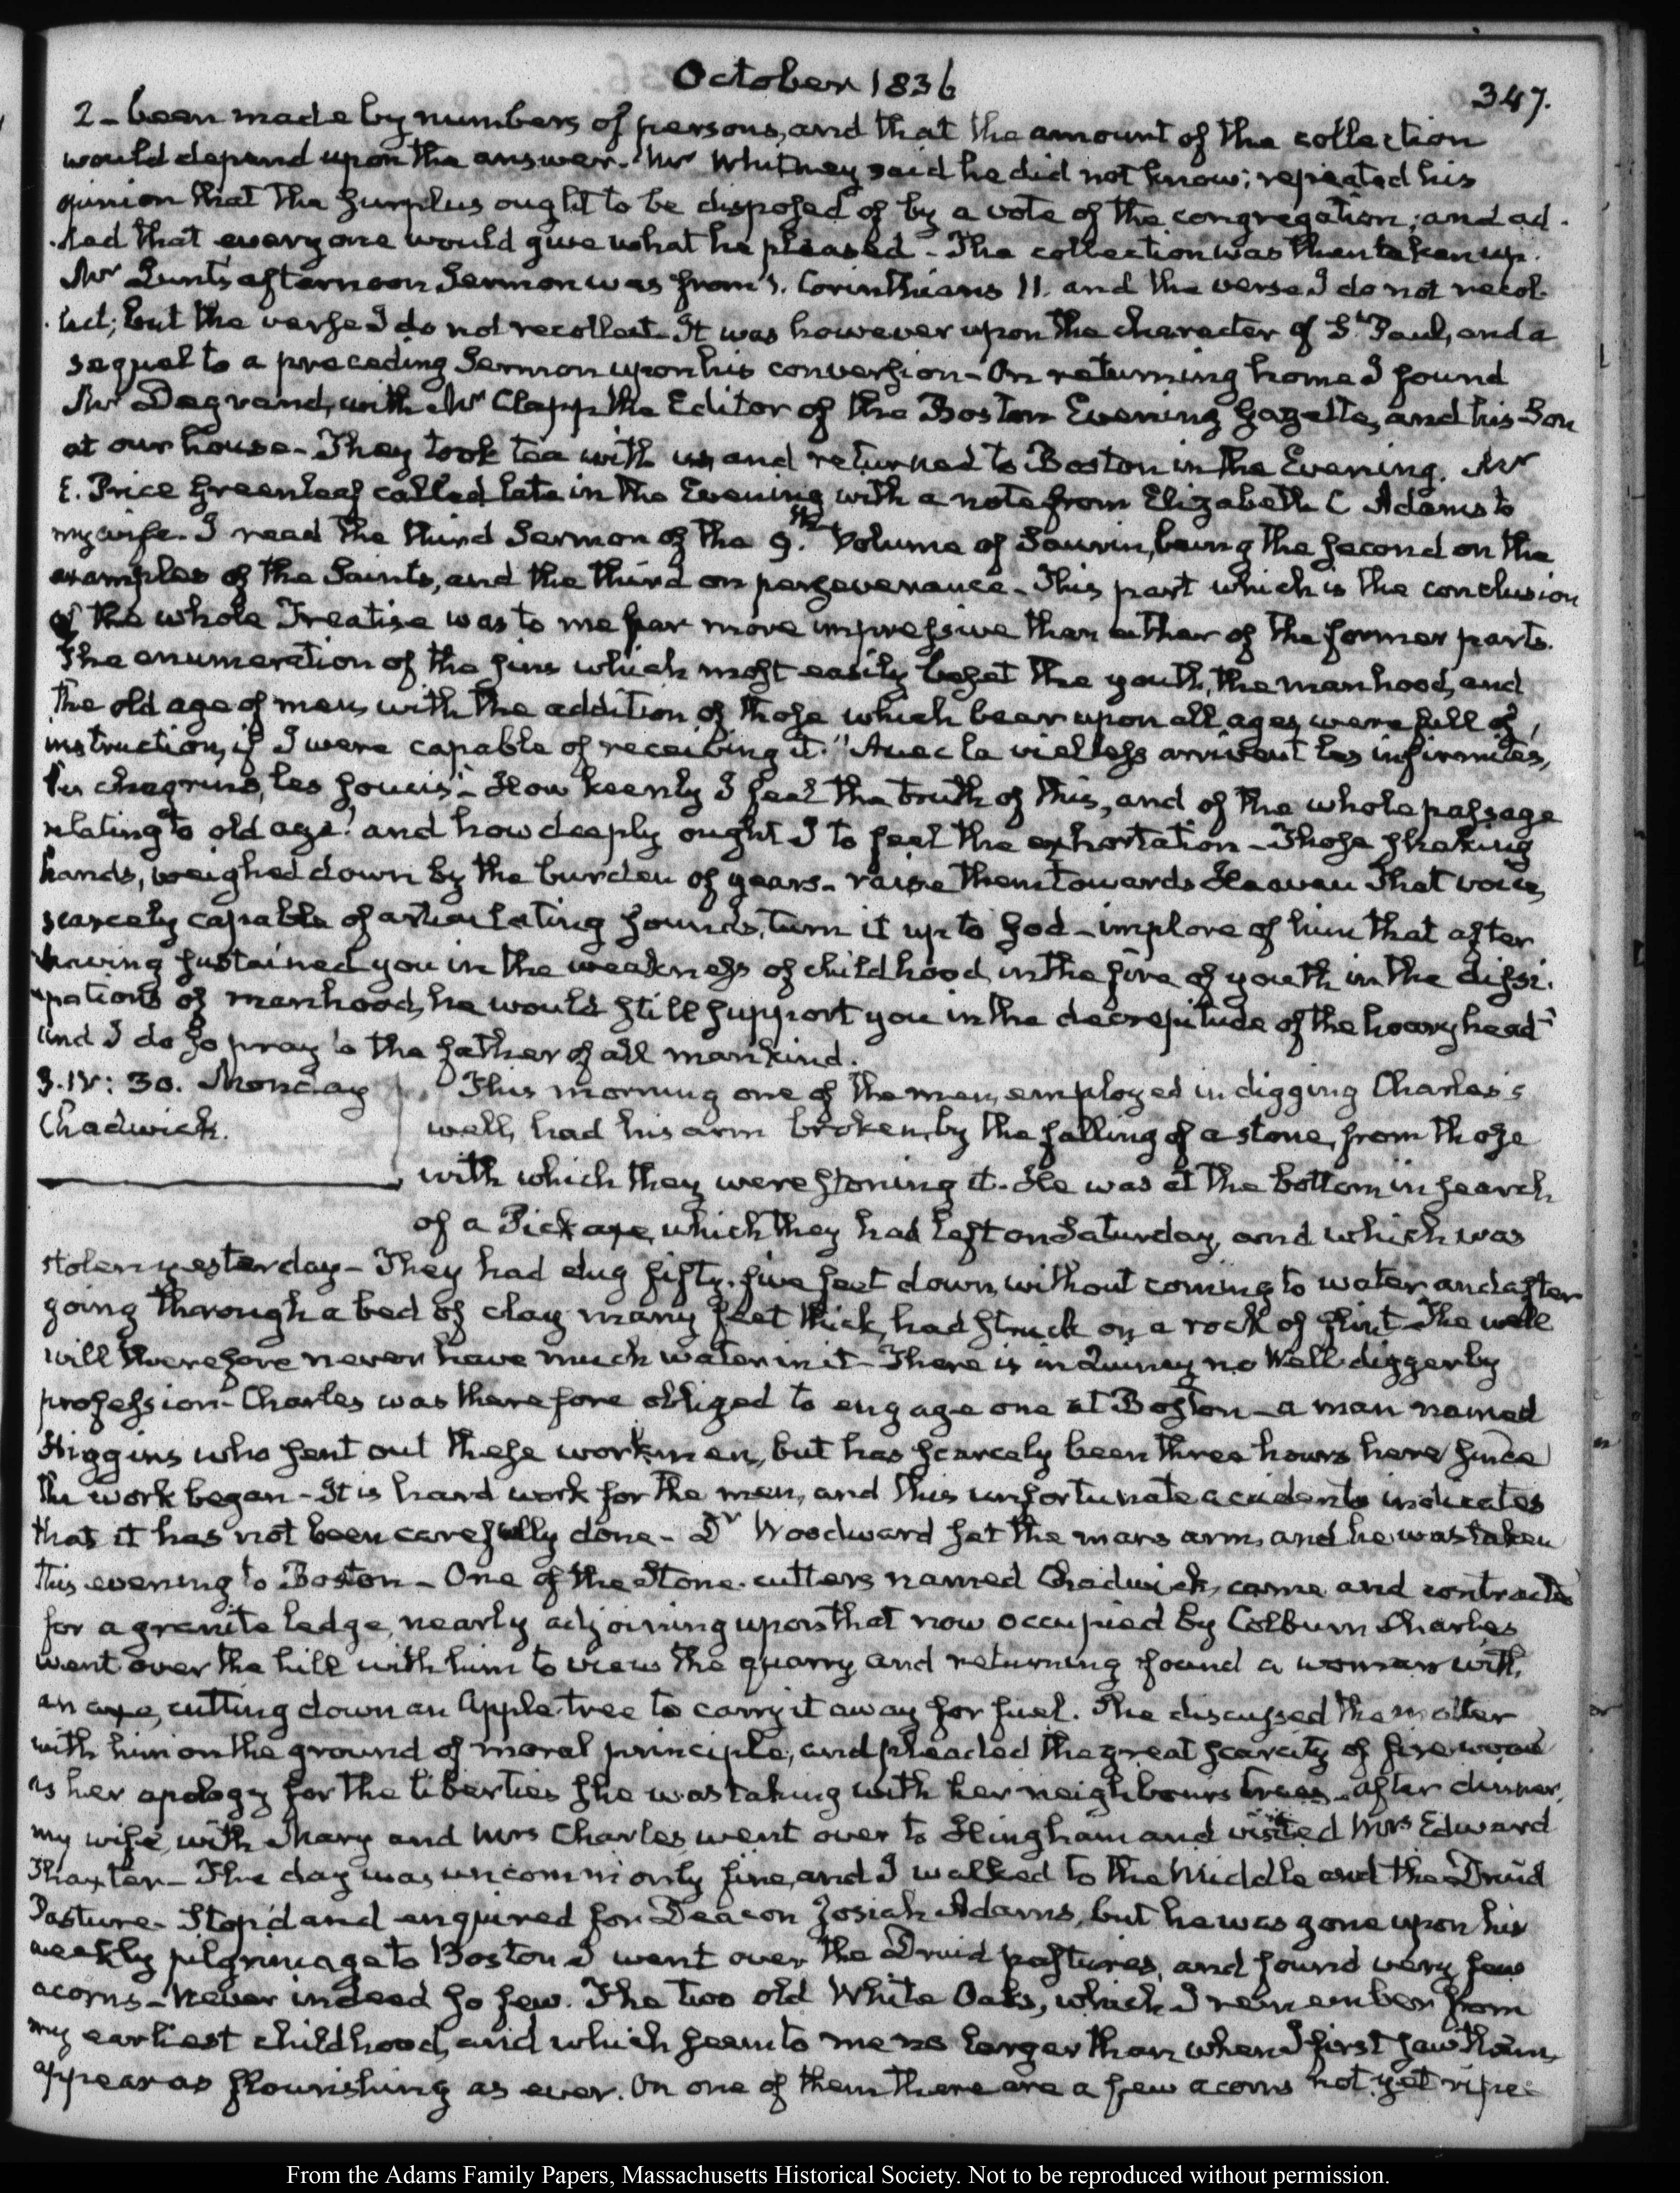 October 1836
347.
2 - been made by numbers of persons, and that the amount of the collection
would depend upon the answer. Mr Whitney said he did not know; repeated his
opinion that the surplus ought to be disposed of by a vote of the congregation; and ad-
-ded that every one would give what he pleased - The collection was then taken up.
Mr Lunt's afternoon Sermon was from 1. Corinthians 11. and the verse I do not recol-
-lect; but the verse I do not recollect. It was however upon the character of St Paul, and a
sequel to a preceding Sermon upon his conversion - On returning home I found
Mr Degrand, with Mr Clapp the Editor of the Boston Evening Gazette, and his Son
at our house - They took tea with us, and returned to Boston in the Evening. Mr
E. Price Greenleaf called late in the Evening with a note from Elizabeth C Adams to
my wife. I read the third Sermon of the 9th Volume of Saurin, being the second on the
examples of the Saints, and the third on perseverance - This part which is the conclusion
of the whole Treatise was to me far more impressive than either of the former parts.
The enumeration of the sins which most easily beset the youth, the manhood, and
the old age of men, with the addition of those which bear upon all ages, were full of
instruction, if I were capable of receiving it. "Avec la vielless arrivent les infirmites,
les chagrins, les soucis" - How keenly I feel the truth of this, and of the whole passage
relating to old age! and how deeply ought I to feel the exhortation - Those shaking
hands, weighed down by the burden of years - raise them towards Heaven That voice,
scarcely capable of articulating sounds, turn it up to God - implore of him that after
having sustained you in the weakness of childhood, in the fire of youth in the dissi-
-pations of manhood, he would still support you in the decrepitude of the hoary head"
And I do so pray to the father of all mankind.
3. IV: 30. Monday
Chadwick.
This morning one of the men, employed in digging Charles's
well, had his arm broken, by the falling of a stone, from those
with which they were stoning it. He was at the bottom in search
of a Pickaxe, which they had left on Saturday, and which was
stolen yesterday - They had dug fifty-five feet down, without coming to water, and after
going through a bed of clay many feet thick, had struck on a rock of flint. The well
will therefore never have much water in it - There is in Quincy no Well-digger by
profession - Charles was therefore obliged to engage one at Boston - a man named
Higgins who sent out these workmen, but has scarcely been three hours here since
the work began - It is hard work for the men, and this unfortunate accidents indicates
that it has not been carefully done - Dr Woodward set the mans arm, and he was taken
this evening to Boston - One of the Stone-cutters named Chadwick, came and contracted
for a granite ledge, nearly adjoining upon that now occupied by Colburn Charles
went over the hill with him to view the quarry, and returning found a woman with
an axe, cutting down an Apple-tree to carry it away for fuel. She discussed the matter
with him on the ground of moral principle, and pleaded the great scarcity of fire wood
as her apology for the liberties she was taking with her neighbours trees - after dinner,
my wife, with Mary and Mrs Charles, went over to Hingham and visited Mrs Edward
Thaxter - The day was uncommonly fine, and I walked to the Middle and the Druid
Pasture - Stop'd and enquired for Deacon Josiah Adams, but he was gone upon his
weekly pilgrimage to Boston I went over the Druid pastures, and found very few
acorns - Never indeed so few. The two old White Oaks, which I remember from
my earliest childhood, and which seem to me no larger than when I first saw them,
appear as flourishing as ever. On one of them there are a few acorns not yet ripe -
From the Adams Family Papers, Massachusetts Historical Society. Not to be reproduced without permission.